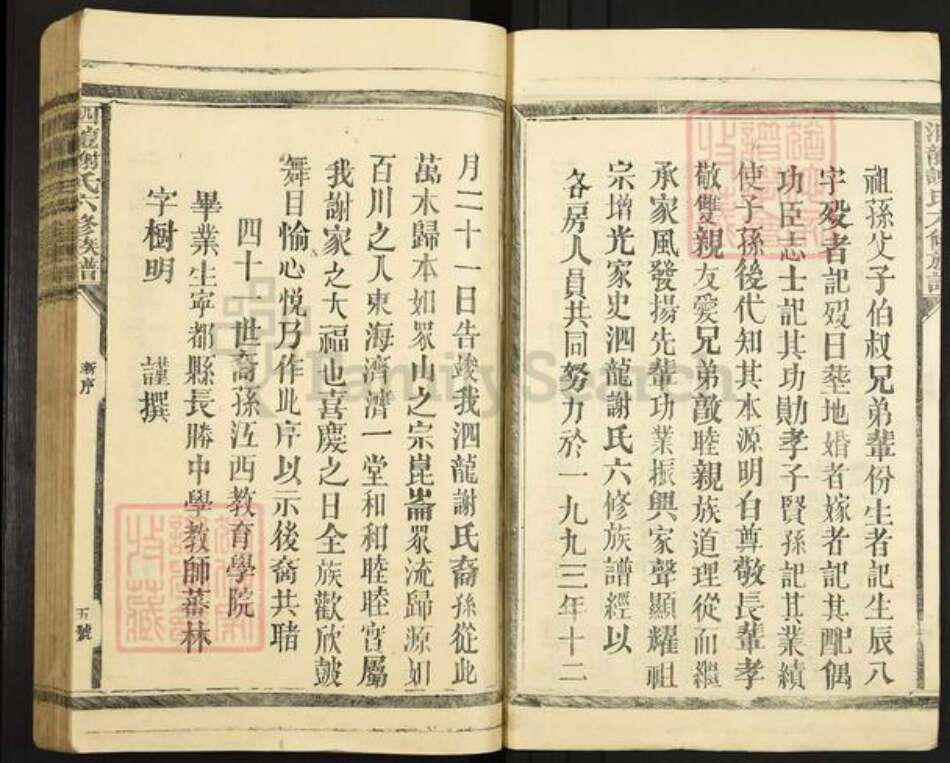 祖孫父子伯叔兄弟輩份生者記生辰八
字歿者記歿日塟地婚者嫁者記其配偶
功臣志士記其功勛孝子賢孫記其業績
使子孫後代知其本源明白尊敬長輩孝
敬雙親友愛兄弟敦睦親族道理從而繼
承家風發揚先輩功業振興家聲顯耀祖
宗增光家史泗龍謝氏六修族譜經以
各房人員共同努力於一九九三年十二
月二十一日告竣我泗龍謝氏裔孫從此
萬木歸本如眾山之宗崑崙眾流歸源如
百川之入東海濟濟一堂和和睦睦實屬
我謝家之大福也喜慶之日全族歡欣鼓
舞日愉心悅乃作此序以示後裔共睹
四十一世裔孫江西教育學院
畢業生寧都縣長勝中學教師蕃林
字樹明 謹撰
謝氏六修族譜
新序
五號
FamilySearch